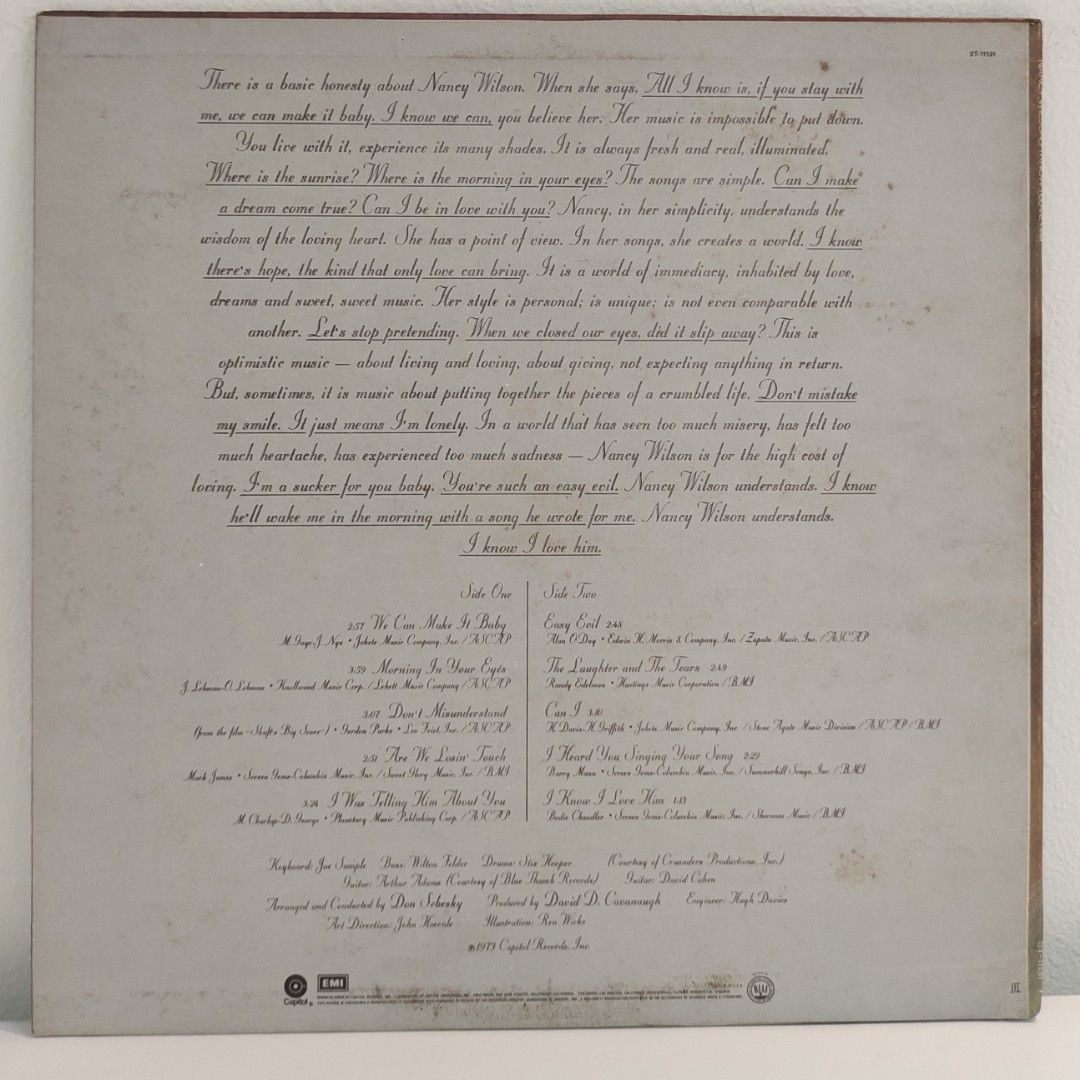 ST-11131
There is a basic honesty about Nancy Wilson. When she says, All I know is, if you stay with
me, we can make it baby. I know we can, you believe her. Her music is impossible to put down.
You live with it, experience its many shades. It is always fresh and real, illuminated.
Where is the sunrise? Where is the morning in your eyes? The songs are simple. Can I make
a dream come true? Can I be in love with you? Nancy, in her simplicity, understands the
wisdom of the loving heart. She has a point of view. In her songs, she creates a world. I know
there's hope, the kind that only love can bring. It is a world of immediacy, inhabited by love,
dreams and sweet, sweet music. Her style is personal; is unique; is not even comparable with
another. Let's stop pretending. When we closed our eyes, did it slip away? This is
optimistic music — about living and loving, about giving, not expecting anything in return.
But, sometimes, it is music about putting together the pieces of a crumbled life. Don't mistake
my smile. It just means I'm lonely. In a world that has seen too much misery, has felt too
much heartache, has experienced too much sadness — Nancy Wilson is for the high cost of
loving. I'm a sucker for you baby. You're such an easy evil. Nancy Wilson understands. I know
he'll wake me in the morning with a song he wrote for me. Nancy Wilson understands.
I know I love him.
Side One
2:57 We Can Make It Baby
M. Gaye-J. Nyx • Jobete Music Company, Inc. / ASCAP
3:59 Morning In Your Eyes
J. Lehman-O. Lehman • Knollwood Music Corp. / Lehett Music Company / ASCAP
3:07 Don't Misunderstand
(from the film "Shaft's Big Score") • Gordon Parks • Leo Feist, Inc. / ASCAP
2:51 Are We Losin' Touch
Mark James • Screen Gems-Columbia Music, Inc. / Sweet Glory Music, Inc. / BMI
3:24 I Was Telling Him About You
M. Charlap-D. George • Planetary Music Publishing Corp. / ASCAP
Side Two
Easy Evil 2:48
Alan O'Day • Edwin H. Morris & Company, Inc. / Zapata Music, Inc. / ASCAP
The Laughter and The Tears 2:49
Randy Edelman • Hastings Music Corporation / BMI
Can I 3:10
H. Davis-H. Griffith • Jobete Music Company, Inc / Stone Agate Music Division / ASCAP / BMI
I Heard You Singing Your Song 2:29
Barry Mann • Screen Gems-Columbia Music, Inc. / Summerhill Songs, Inc. / BMI
I Know I Love Him 1:13
Bodie Chandler • Screen Gems-Columbia Music, Inc. / Music / BMI
Keyboard: Joe Sample Bass: Wilton Felder Drums: Stix Hooper (Courtesy of Crusaders Productions, Inc.)
Guitar: Arthur Adams (Courtesy of Blue Thumb Records) Guitar: David Cohen
Arranged and Conducted by Don Sebesky Produced by David D. Cavanaugh Engineer: Hugh Davies
Art Direction: John Hoernle Illustration: Ren Wicks
℗1973 Capitol Records, Inc.
Capitol® EMI
RIAA